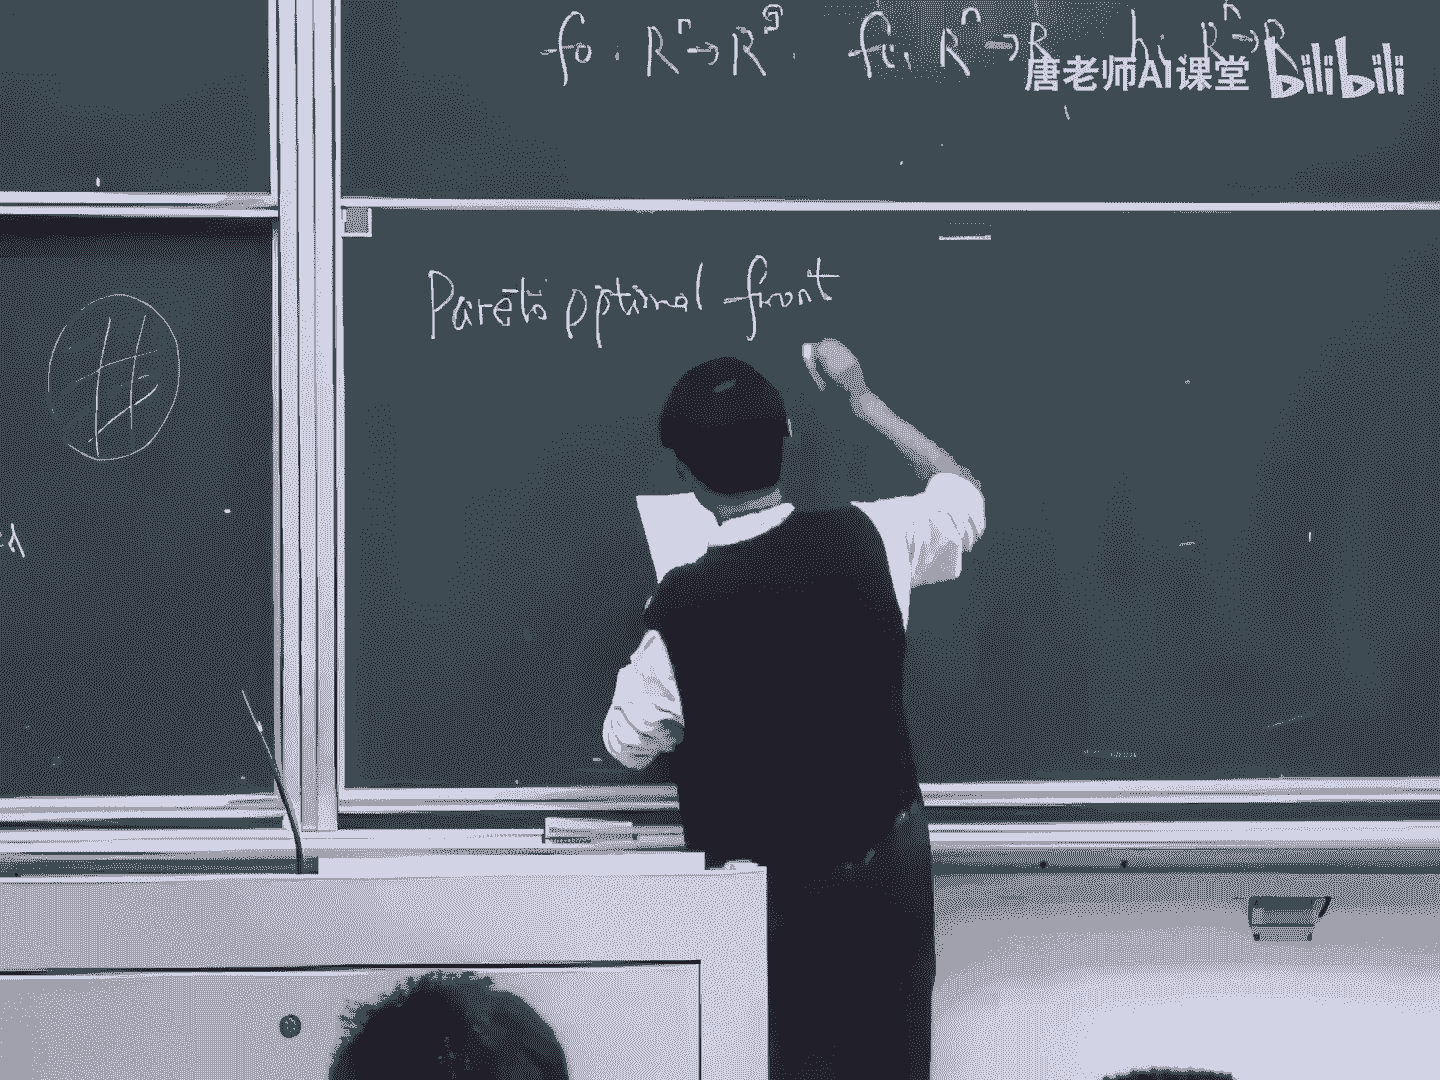 f₀: Rⁿ→R^q. fᵢ: Rⁿ→R hᵢ Rⁿ→R
唐老师AI课堂 bilibili
Pareto optimal front